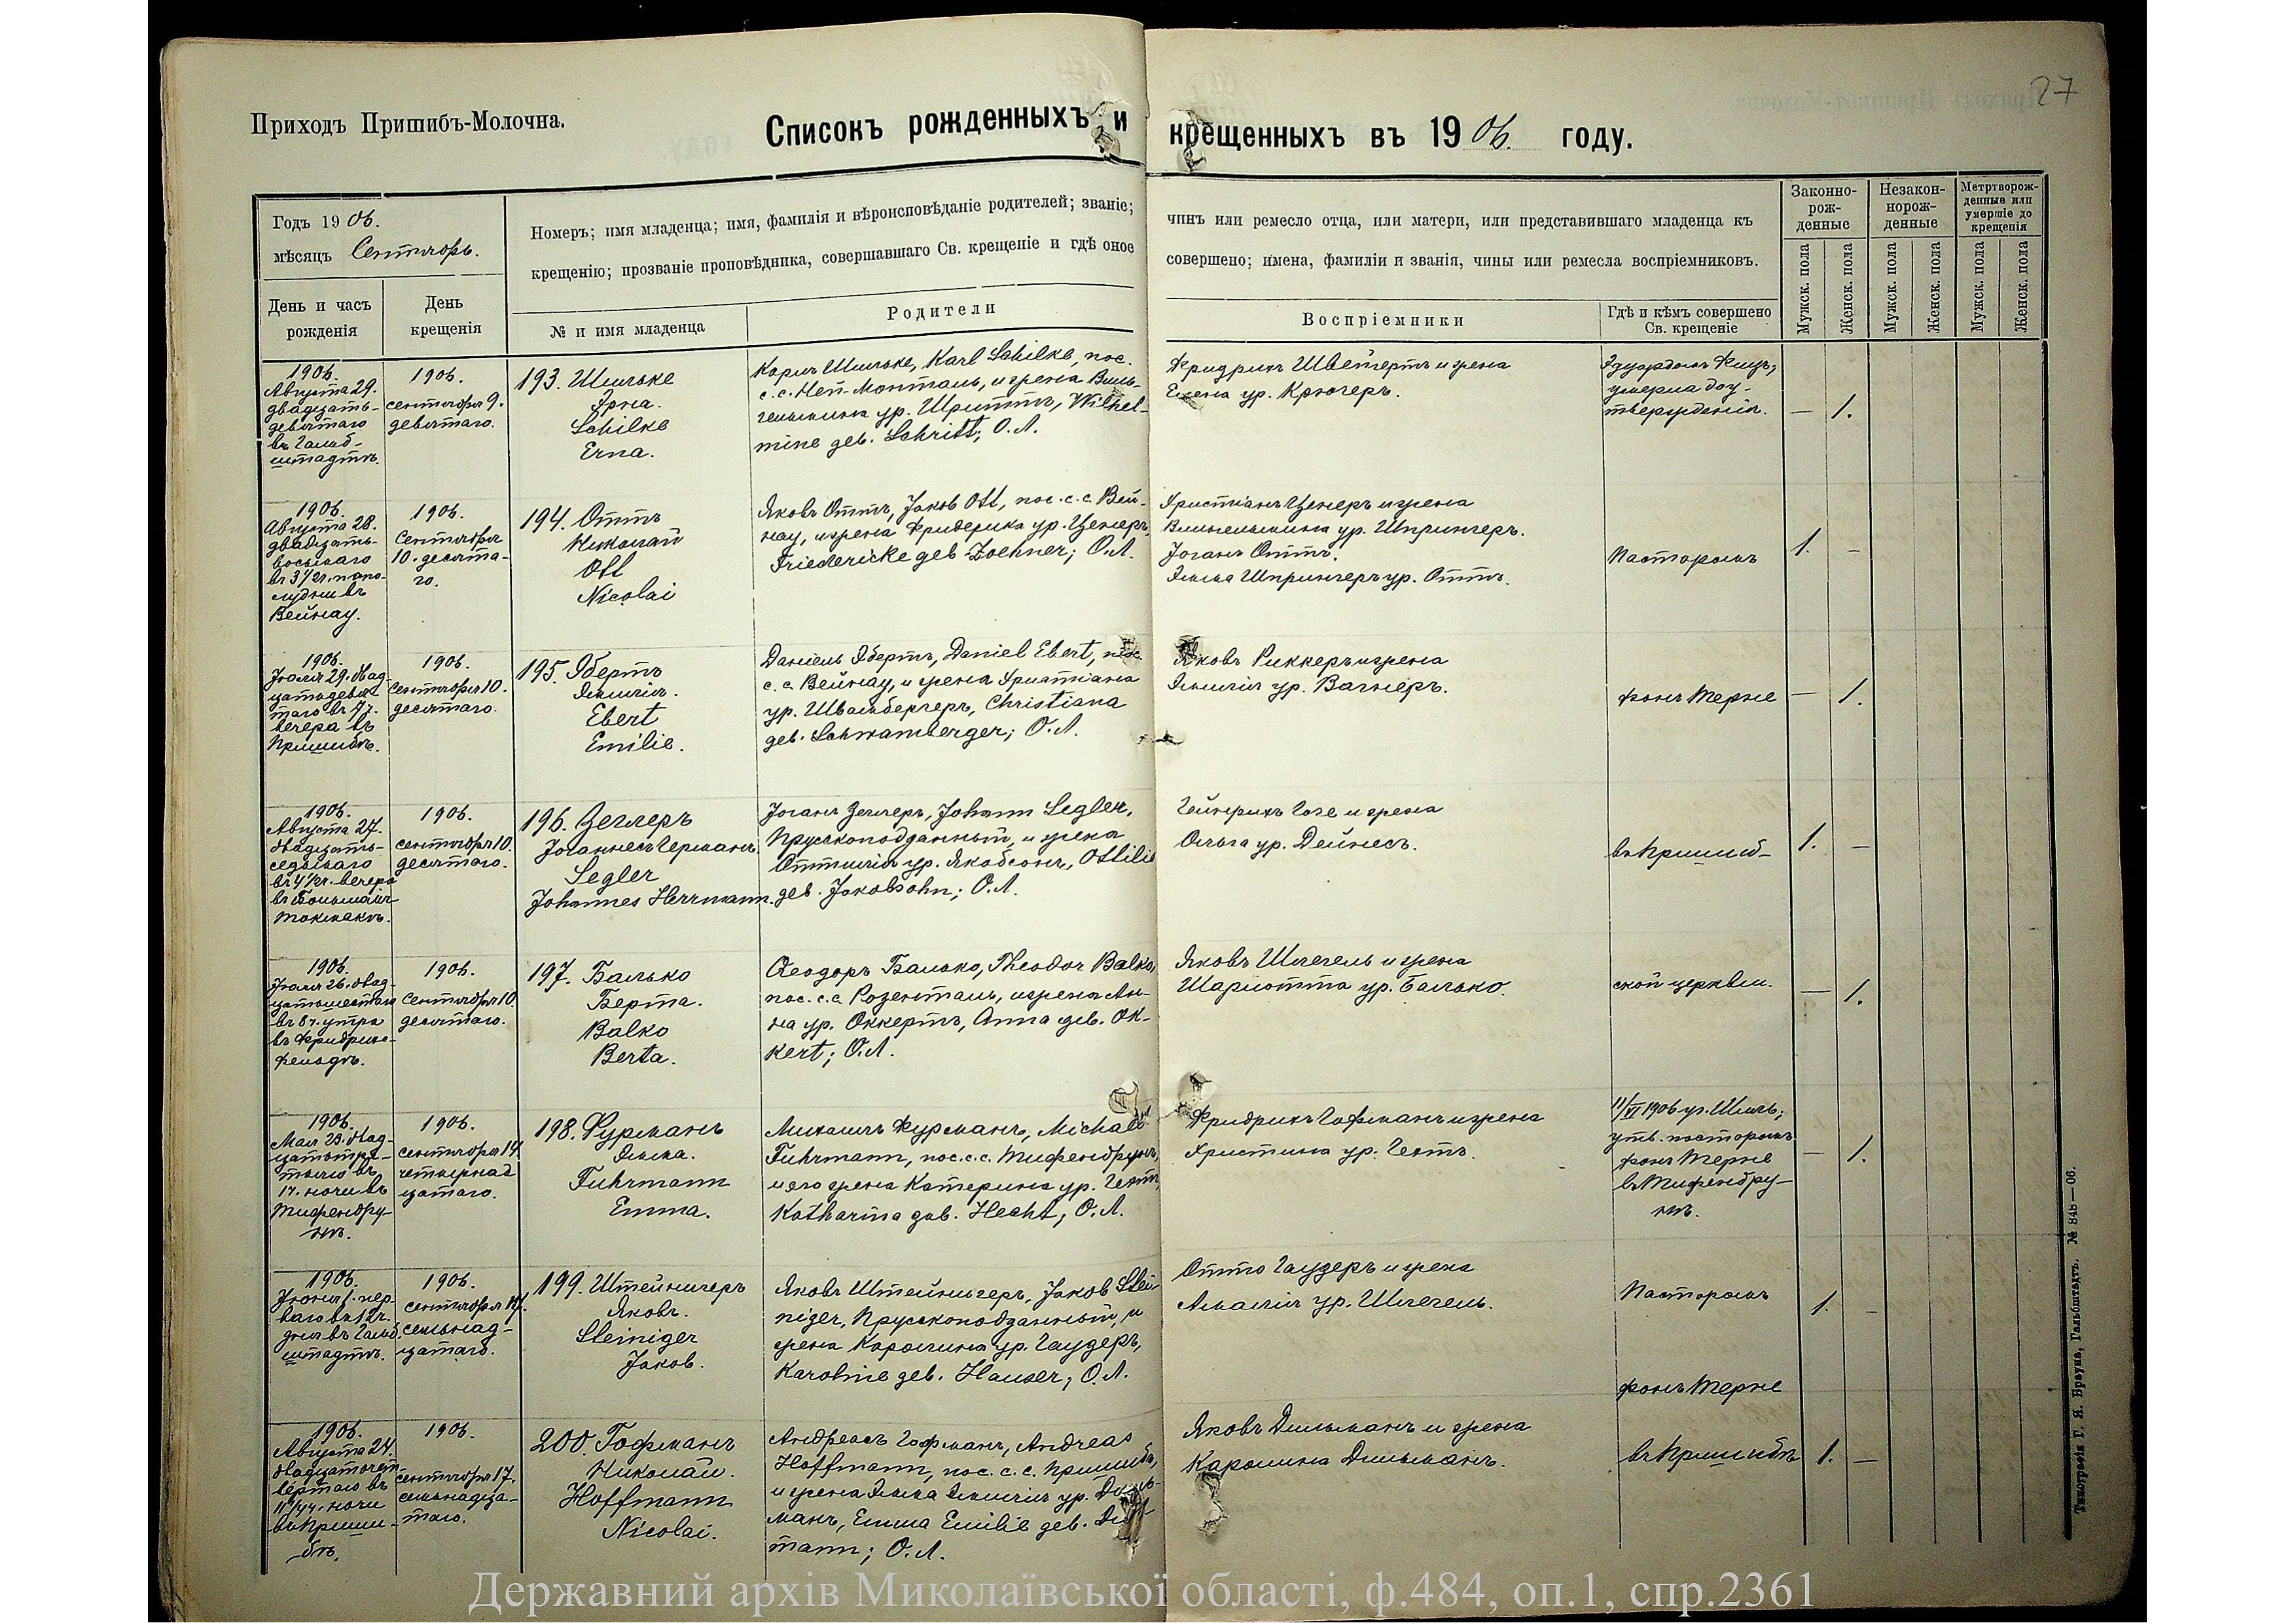 27
Приходъ Пришибъ-Молочна.
Списокъ рожденныхъ и крещенныхъ въ 1906. году.
Годъ 1906.
мѣсяцъ Сентябрь.
Номеръ; имя младенца; имя, фамилія и вѣроисповѣданіе родителей; званіе; чинъ или ремесло отца, или матери, или представившаго младенца къ
крещенію; прозваніе проповѣдника, совершавшаго Св. крещеніе и гдѣ оное совершено; имена, фамиліи и званія, чины или ремесла воспріемниковъ.
Законно-
рож-
денные
Незакон-
норож-
денные
Метртворож-
денные или
умершіе до
крещенія
День и часъ
рожденія
День
крещенія
№ и имя младенца
Родители
Воспріемники
Гдѣ и кѣмъ совершено
Св. крещеніе
Мужск. пола
Женск. пола
Мужск. пола
Женск. пола
Мужск. пола
Женск. пола
1906.
Августа 29.
двадцать-
девятаго
въ Гальб-
штадтѣ.
1906.
сентября 9.
девятаго.
193. Шильке
Эрна.
Schilke
Erna.
Карлъ Шильке, Karl Schilke, пос.
с.с. Ней-Монталь, и жена Виль-
гельмина ур. Шриттъ, Wilhel-
mine geb. Schritt; О.Л.
Фридрихъ Швейгертъ и жена
Елена ур. Крюгеръ.
Эдуардомъ Фицъ;
умерла до у-
твержденія.
— 1.
1906.
Августа 28.
двадцать-
восьмаго
въ 3 1/2 ч. попо-
лудни въ
Вейнау.
1906.
Сентября
10. десята-
го.
194. Оттъ
Николай
Ott
Nicolai
Яковъ Оттъ, Jakob Ott, пос. с.с. Вей-
нау, и жена Фридерика ур. Ценеръ,
Friedericke geb Zoehner; О.Л.
Христіанъ Ценеръ и жена
Вильгельмина ур. Шпрингеръ.
Іоганъ Оттъ.
Эмма Шпрингеръ ур. Оттъ.
Пасторомъ
1. —
1906.
Іюля 29. двад-
цатьдевя-
таго въ 7 ч.
вечера въ
Пришибѣ.
1906.
Сентября 10.
десятаго.
195. Эбертъ
Эмилія.
Ebert
Emilie.
Даніель Эбертъ, Daniel Ebert, пос.
с.с. Вейнау, и жена Христіана
ур. Швамбергеръ, Christiana
geb. Schwamberger; О.Л.
Яковъ Риккеръ и жена
Эмилія ур. Вагнеръ.
фонъ Терне
— 1.
1906.
Августа 27.
двадцать-
седьмаго
въ 4 1/2 ч. вечера
въ Большомъ
Токмакѣ.
1906.
сентября 10.
десятаго.
196. Зеглеръ
Іоганнесъ Германъ
Segler
Johannes Herrmann.
Іоганъ Зеглеръ, Johann Segler,
Прусскоподданный, и жена
Оттилія ур. Якобсонъ, Ottilie
geb. Jakobsohn; О.Л.
Гейнрихъ Гозе и жена
Ольга ур. Дейнесъ.
въ Пришиб-
1. —
1906.
Іюля 26. двад-
цатьшестаго
въ 8 ч. утра
въ Фридрихс-
фельдѣ.
1906.
Сентября 10.
десятаго.
197. Балько
Берта.
Balko
Berta.
Ѳеодоръ Балько, Theodor Balko,
пос. с.с. Розенталь, и жена Ан-
на ур. Оккертъ, Anna geb. Ok-
kert; О.Л.
Яковъ Шлегель и жена
Шарлотта ур. Балько.
ской церкви.
— 1.
1906.
Мая 23. двад-
цатьтре-
тьяго въ
1 ч. ночи въ
Тифенбру-
нѣ.
1906.
сентября 14.
четырнад-
цатаго.
198. Фурманъ
Эмма.
Fuhrmann
Emma.
Михаилъ Фурманъ, Michael
Fuhrmann, пос. с.с. Тифенбрунъ,
и его жена Катерина ур. Гехтъ,
Katharina geb. Hecht; О.Л.
Фридрихъ Гофманъ и жена
Христина ур. Гехтъ.
11/VI 1906 уч. Шиль;
утв. пасторомъ
фонъ Терне
въ Тифенбру-
нѣ.
— 1.
1906.
Іюня 1. пер-
ваго въ 12 ч.
дня въ Гальб-
штадтѣ.
1906.
сентября 17.
семьнад-
цатаго.
199. Штейнигеръ
Яковъ.
Steiniger
Jakob.
Яковъ Штейнигеръ, Jakob Stei-
niger, Прусскоподданный, и
жена Каролина ур. Гаузеръ,
Karoline geb. Hauser; О.Л.
Отто Гаузеръ и жена
Амалія ур. Шлегель.
Пасторомъ
фонъ Терне
1. —
1906.
Августа 24.
двадцатьчет-
вертаго въ
11 1/4 ч. ночи
въ Приши-
бѣ.
1906.
сентября 17.
семьнадца-
таго.
200. Гофманъ
Николай.
Hoffmann
Nicolai.
Андреасъ Гофманъ, Andreas
Hoffmann, пос. с.с. Пришибъ,
и жена Эмма Эмилія ур. Диль-
манъ, Emma Emilie geb. Dill-
mann; О.Л.
Яковъ Дильманъ и жена
Каролина Дильманъ.
въ Пришибѣ
1. —
Типографія Г. Я. Браунъ, Гальбштадтъ. № 848—06.
Державний архів Миколаївської області, ф.484, оп.1, спр.2361